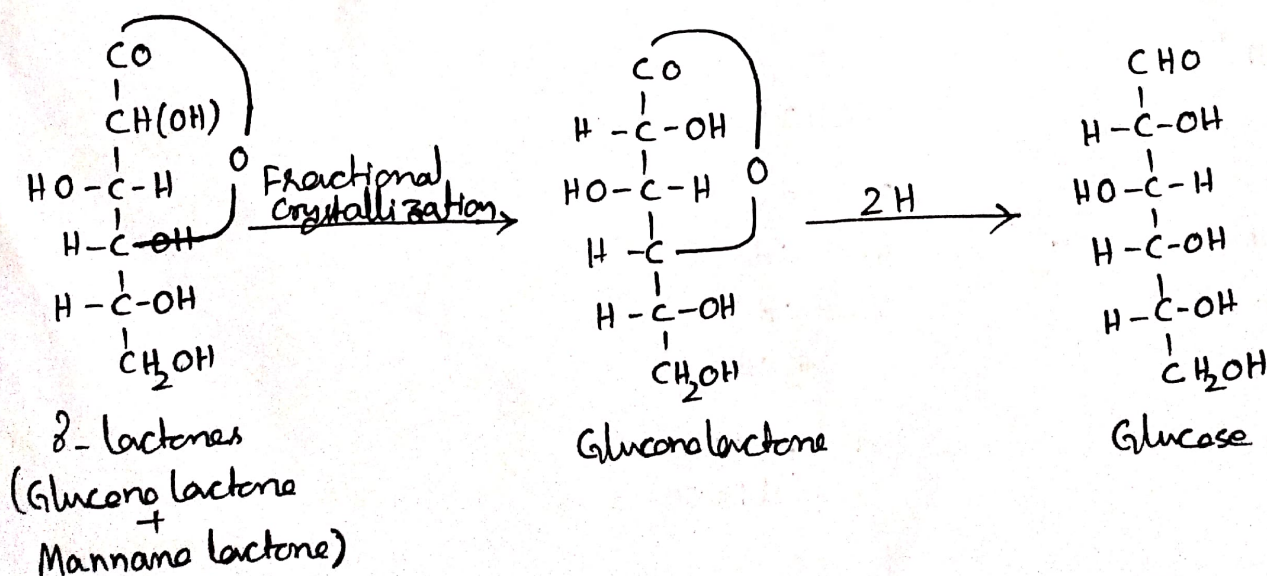 CO
CH(OH)
HO-C-H
O
H-C-OH
H-C-OH
CH2OH
γ- lactones
(Glucono lactone
+
Mannano lactone)
Fractional
crystallization
CO
H-C-OH
HO-C-H
O
H-C
H-C-OH
CH2OH
Gluconolactone
2H
CHO
H-C-OH
HO-C-H
H-C-OH
H-C-OH
CH2OH
Glucose